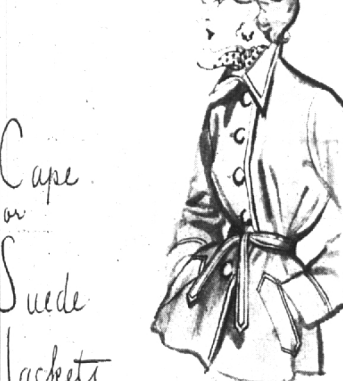 Cape
or
Suede
Jackets